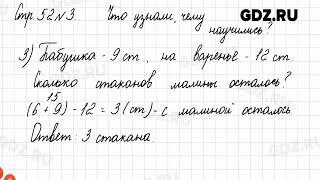 Стр. 52 № 3. Что узнали, чему научились?
GDZ.RU
3) Бабушка - 9 ст., на варенье - 12 ст
Сколько стаканов малины осталось?
15
(6 + 9) - 12 = 3 (ст) - с малиной осталось
Ответ: 3 стакана.